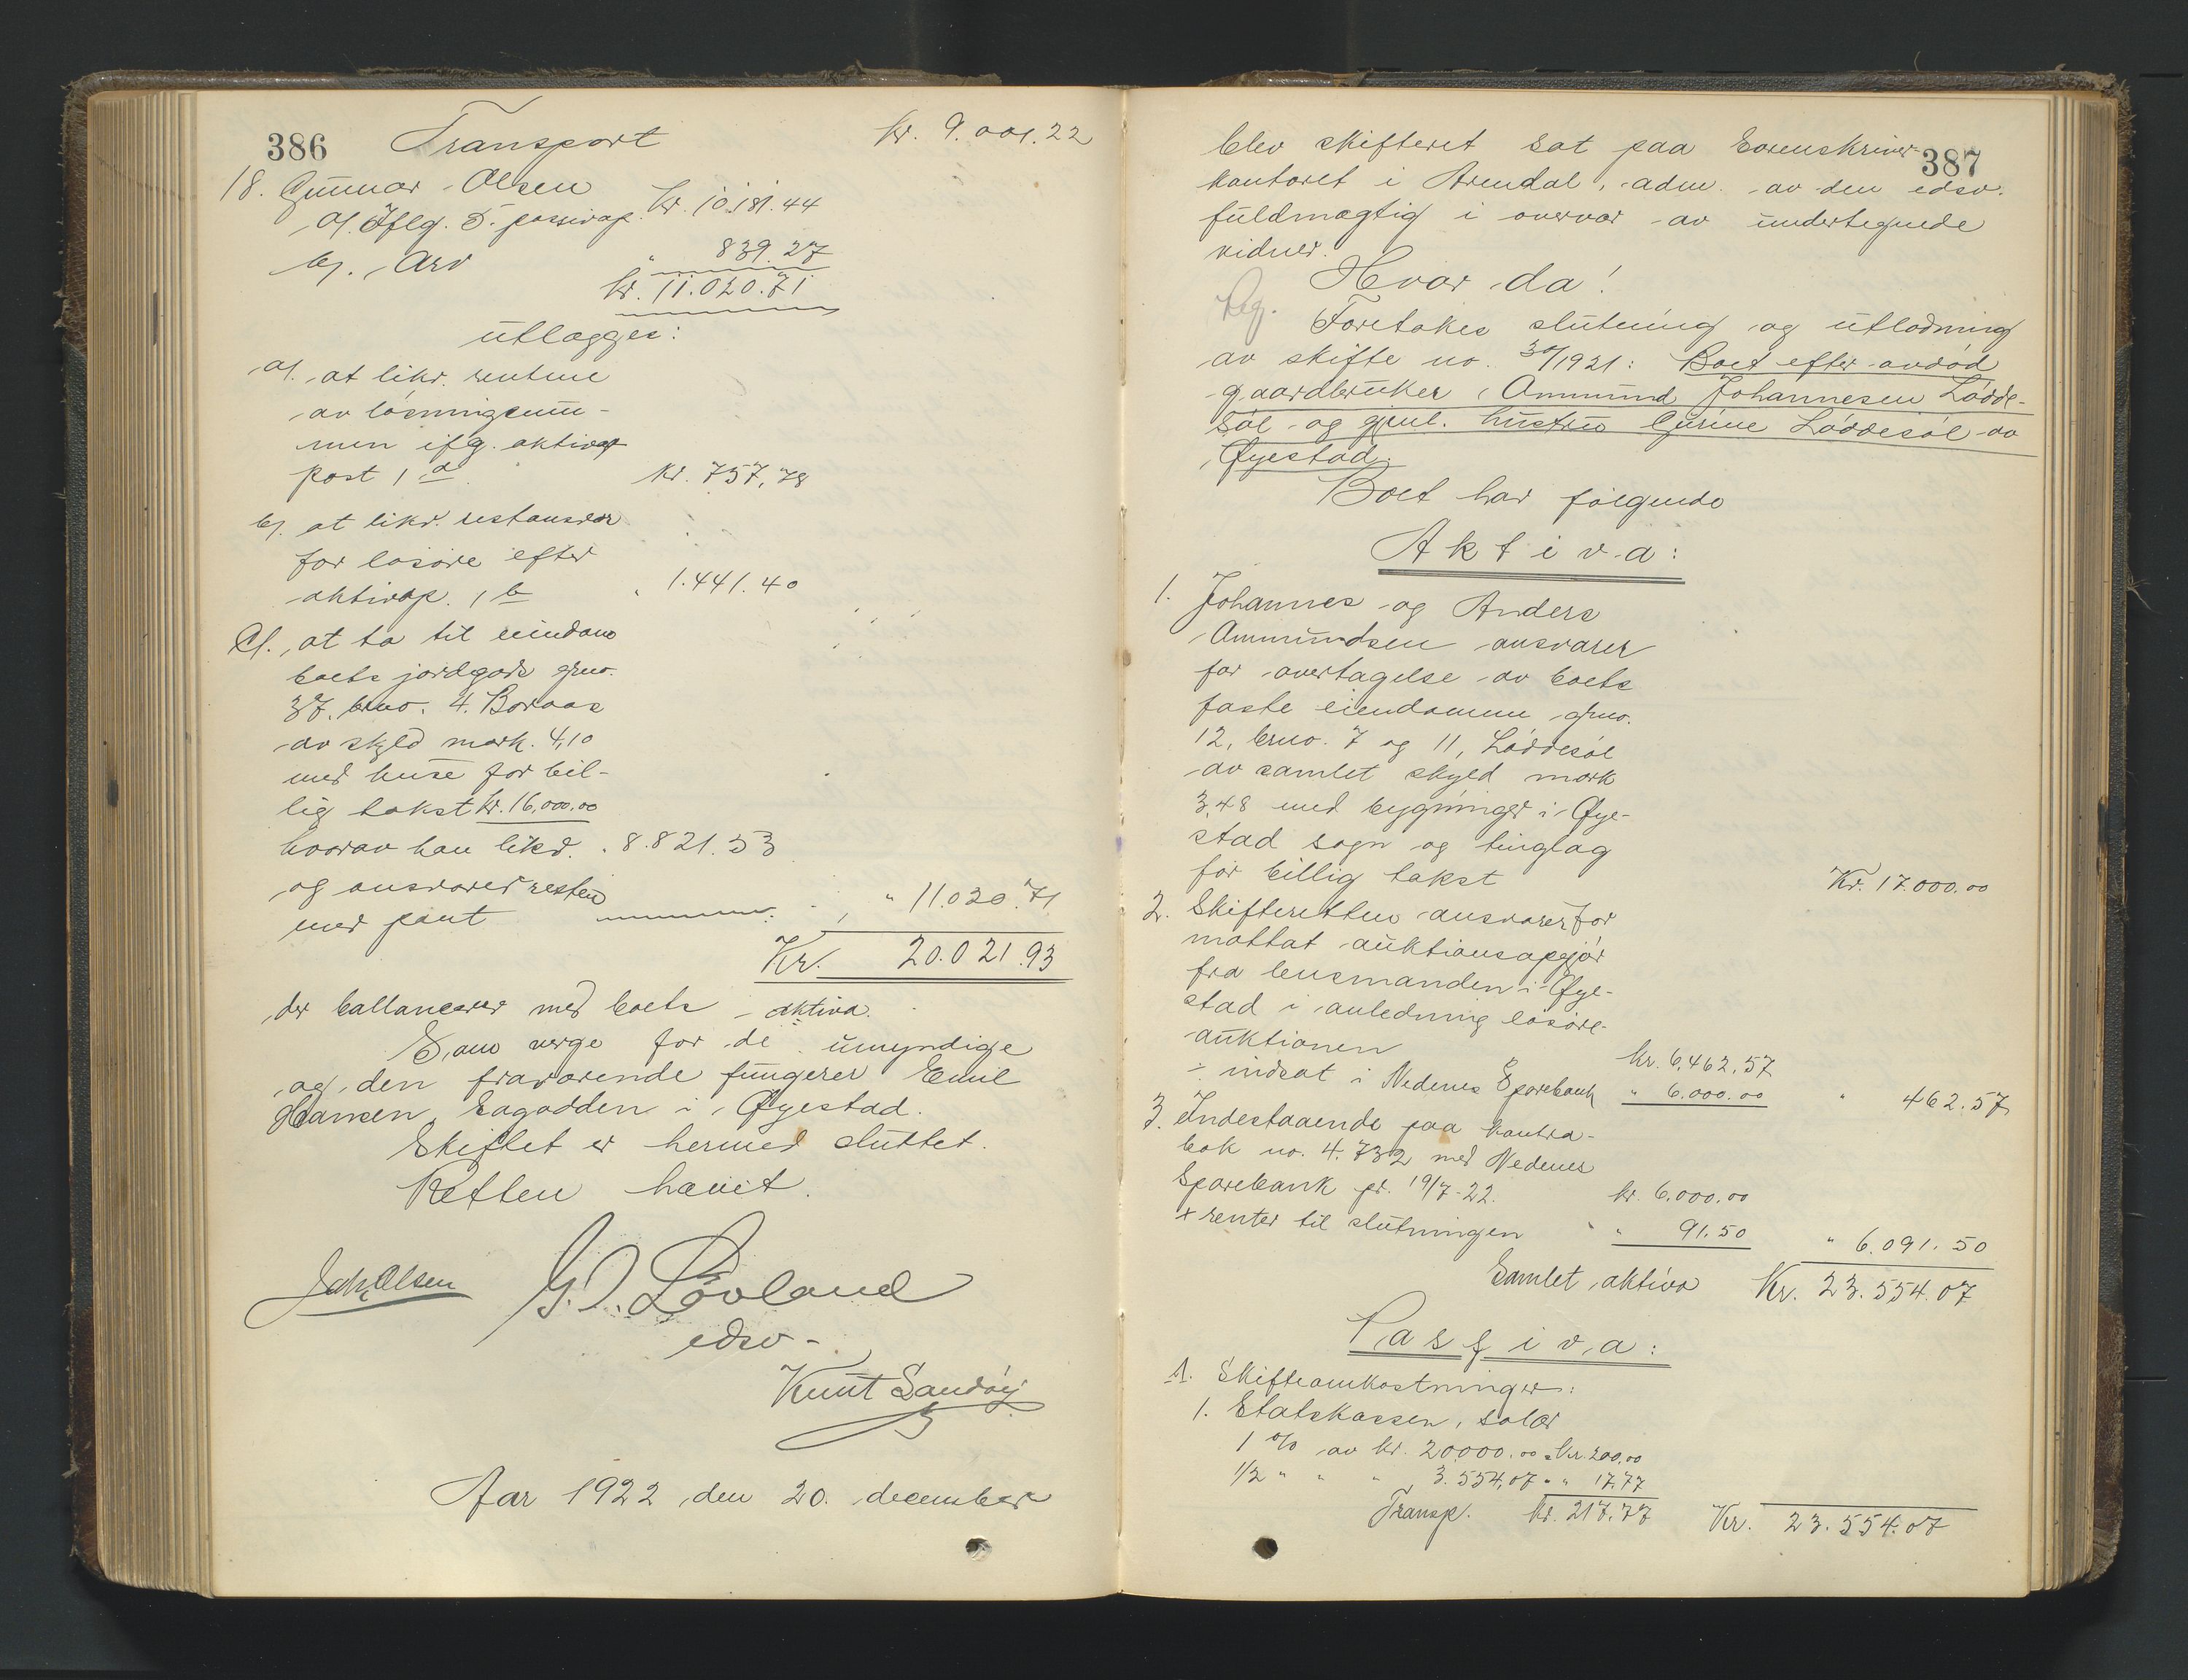 386 Transport kr. 9.001.22
18. Gunnar Olsen
a). Iflg. 5. passivap. kr. 10.181.44
b). Arv " 839.27
kr. 11.020.71
utlægges:
a). at likv. rentene
av løsningsum-
men iflg. aktivap
post 1 a kr. 757,78
b). at likv. restansvar
for løsøre efter
aktivap. 1 b " 1.441.40
c). at ta til eiendom
boets jordgods gno.
37, bno. 4. Boraas
av skyld mark. 4,10
med huse for bil-
lig takst kr. 16,000.00
hvorav han likv. " 8.821.53
og ansvarer resten
med pant " 11.020.71
Kr. 20.021.93
der ballancerer med boets aktiva.
Som verge for de umyndige
og den fraværende fungerer Emil
Hansen, Sagodden i Øyestad.
Skiftet er hermed sluttet.
Retten hævet.
Joh. Olsen G. O. Løvland
edsv-
Knut Sandøy
Aar 1922 den 20. december
387
blev skifteret sat paa Sorenskriver-
kontoret i Arendal, adm. av den edsv.
fuldmægtig i overvær av undertegnede
vidner.
Hvor da!
Foretokes slutning og utlodning
av skifte no. 30/1921: Boet efter avdød
gaardbruker Ommund Johannesen Lødde-
søl og gjenl. hustru Gurine Løddesøl av
Øyestad.
Boet har følgende
Aktiva:
1. Johannes og Anders
Ommundsen ansvarer
for overtagelse av boets
faste eiendomme gno.
12, bno. 7 og 11, Løddesøl
av samlet skyld mark
3,48 med bygninger i Øye-
stad sogn og tinglag
for billig takst Kr. 17.000.00
2. Skifteretten ansvarer for
mottat auktionsopgjør
fra lensmanden i Øye-
stad i anledning løsøre-
auktionen kr. 6,462,57
÷ indsat i Nedenes Sparebank " 6.000.00 " 462.57
3. Indestaaende paa kontra-
bok no. 4.732 med Nedenes
Sparebank pr. 19/7-22. kr. 6.000.00
+ renter til slutningen " 91.50 " 6.091.50
Samlet aktiva Kr. 23.554.07
Passiva:
A. Skifteomkostninger:
1. Statskassen, salær
1 % av kr. 20.000.00 = kr. 200,00
1/2 " " " 3.554,07 = " 17,77
Transp. kr. 217,77 Kr. 23.554.07